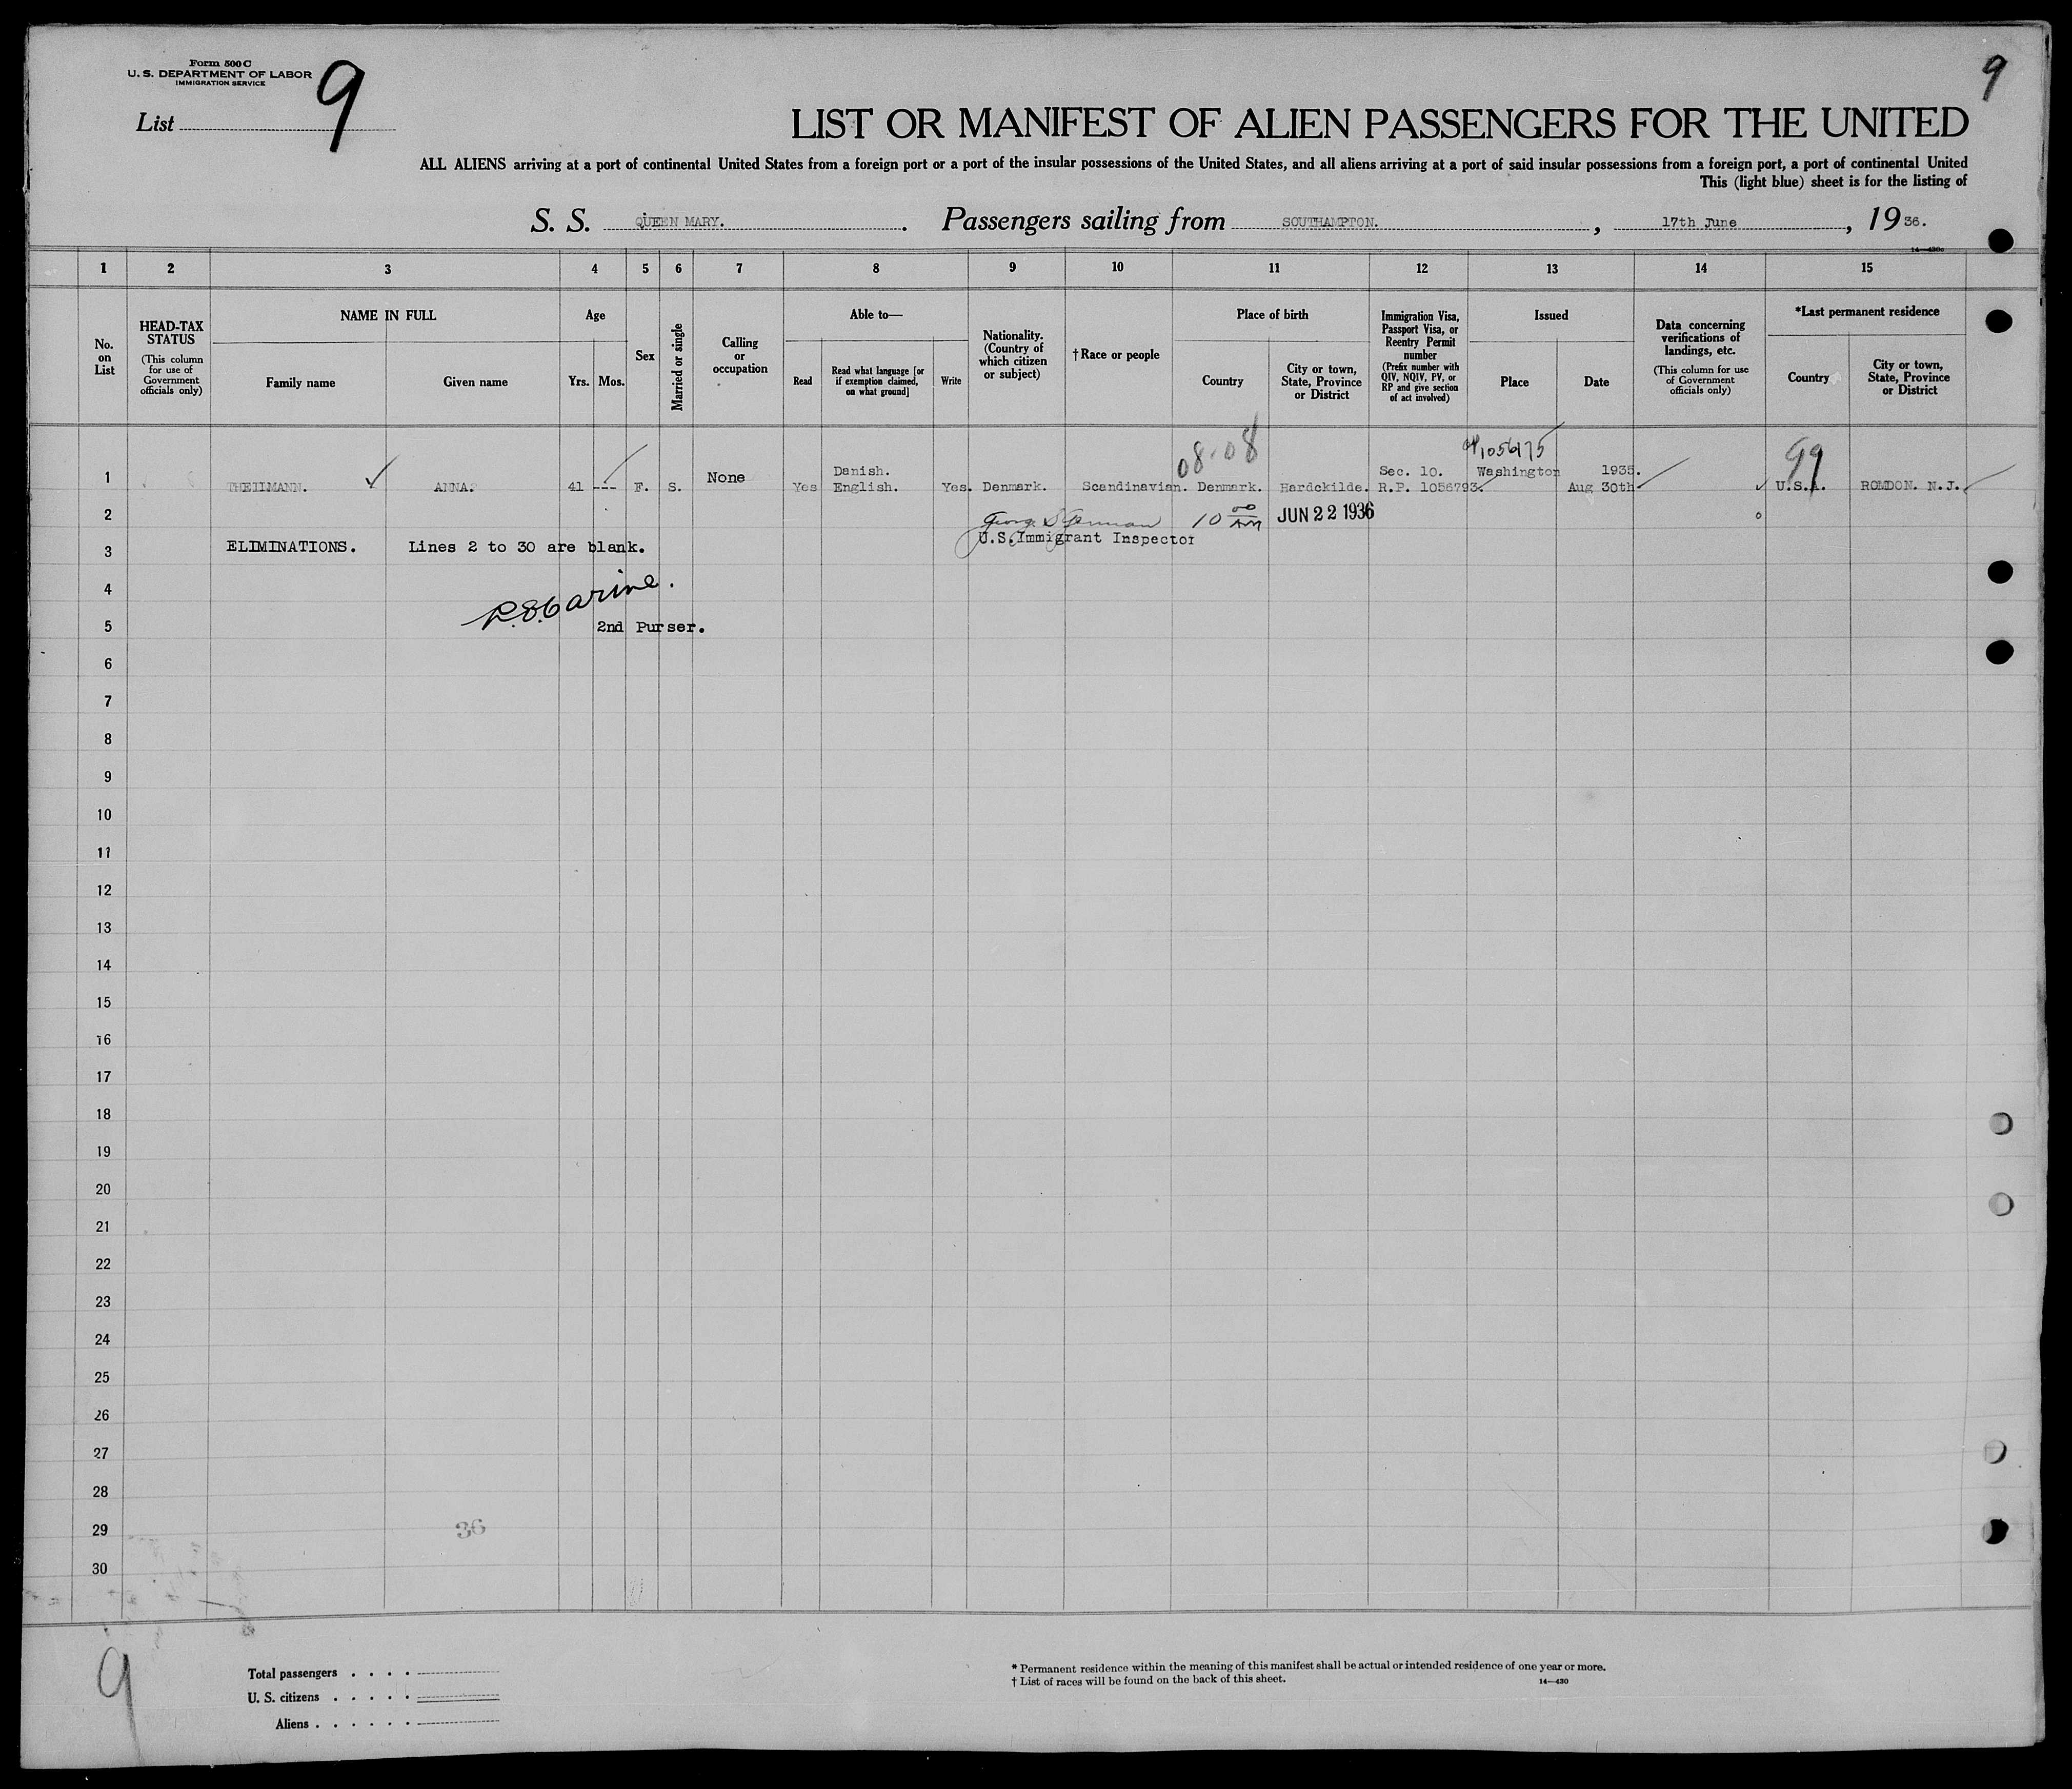 Form 500 C
U. S. DEPARTMENT OF LABOR
IMMIGRATION SERVICE
List 9
9
LIST OR MANIFEST OF ALIEN PASSENGERS FOR THE UNITED
ALL ALIENS arriving at a port of continental United States from a foreign port or a port of the insular possessions of the United States, and all aliens arriving at a port of said insular possessions from a foreign port, a port of continental United
This (light blue) sheet is for the listing of
S. S. QUEEN MARY. Passengers sailing from SOUTHAMPTON. , 17th June , 19 36.
1 2 3 4 5 6 7 8 9 10 11 12 13 14 15
No. on List
HEAD-TAX STATUS
(This column for use of Government officials only)
NAME IN FULL
Family name
Given name
Age
Yrs.
Mos.
Sex
Married or single
Calling or occupation
Able to—
Read
Read what language [or if exemption claimed, on what ground]
Write
Nationality. (Country of which citizen or subject)
†Race or people
Place of birth
Country
City or town, State, Province or District
Immigration Visa, Passport Visa, or Reentry Permit number
(Prefix number with QIV, NQIV, PV, or RP and give section of act involved)
Issued
Place
Date
Data concerning verifications of landings, etc.
(This column for use of Government officials only)
*Last permanent residence
Country
City or town, State, Province or District
08-08 1056175 99
Danish. Sec. 10. Washington 1935.
1 THEILMANN. ANNA. 41 --- F. S. None Yes English. Yes. Denmark. Scandinavian. Denmark. Hardckilde. R.P. 1056793. Aug 30th. U.S.A. ROMDON. N.J.
2 10 00 AM JUN 22 1936
U.S. Immigrant Inspector
3 ELIMINATIONS. Lines 2 to 30 are blank.
4
5 2nd Purser.
6
7
8
9
10
11
12
13
14
15
16
17
18
19
20
21
22
23
24
25
26
27
28
29 36
30
9
Total passengers . . . .
U. S. citizens . . . . .
Aliens . . . . . .
* Permanent residence within the meaning of this manifest shall be actual or intended residence of one year or more.
† List of races will be found on the back of this sheet.
14—430